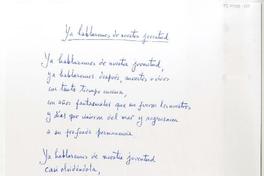 Ya hablaremos de nuestra juventud
Ya hablaremos de nuestra juventud,
ya hablaremos después, muertos o vivos
con tanto tiempo encima,
con años fantasmales que no fueron los nuestros
y días que vinieron del mar y regresaron
a su profunda permanencia.
Ya hablaremos de nuestra juventud
casi olvidándola,